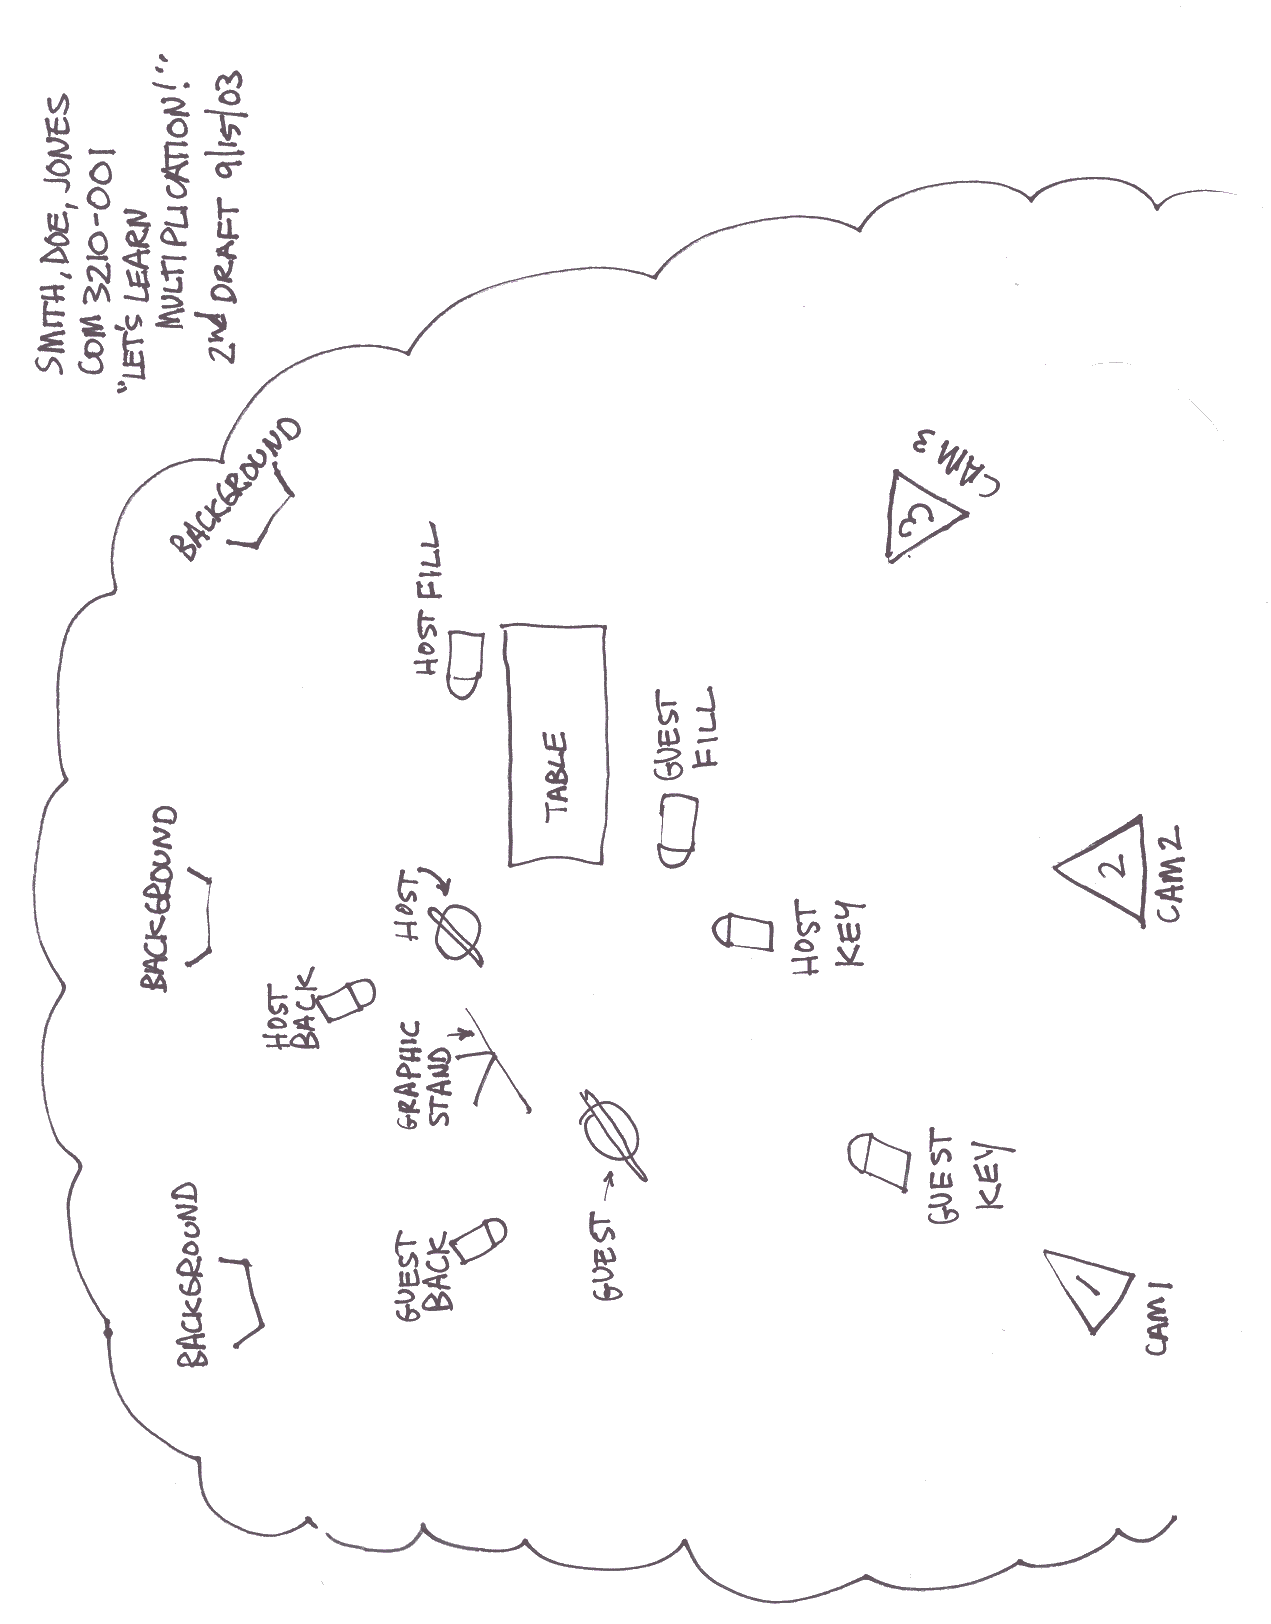 SMITH, DOE, JONES
COM 3210-001
"LET'S LEARN
MULTIPLICATION!"
2nd DRAFT 9/15/03
BACKGROUND
BACKGROUND
BACKGROUND
HOST
BACK
HOST
HOST FILL
GRAPHIC
STAND
GUEST
BACK
TABLE
GUEST
GUEST
FILL
HOST
KEY
GUEST
KEY
1
CAM 1
2
CAM 2
3
CAM 3